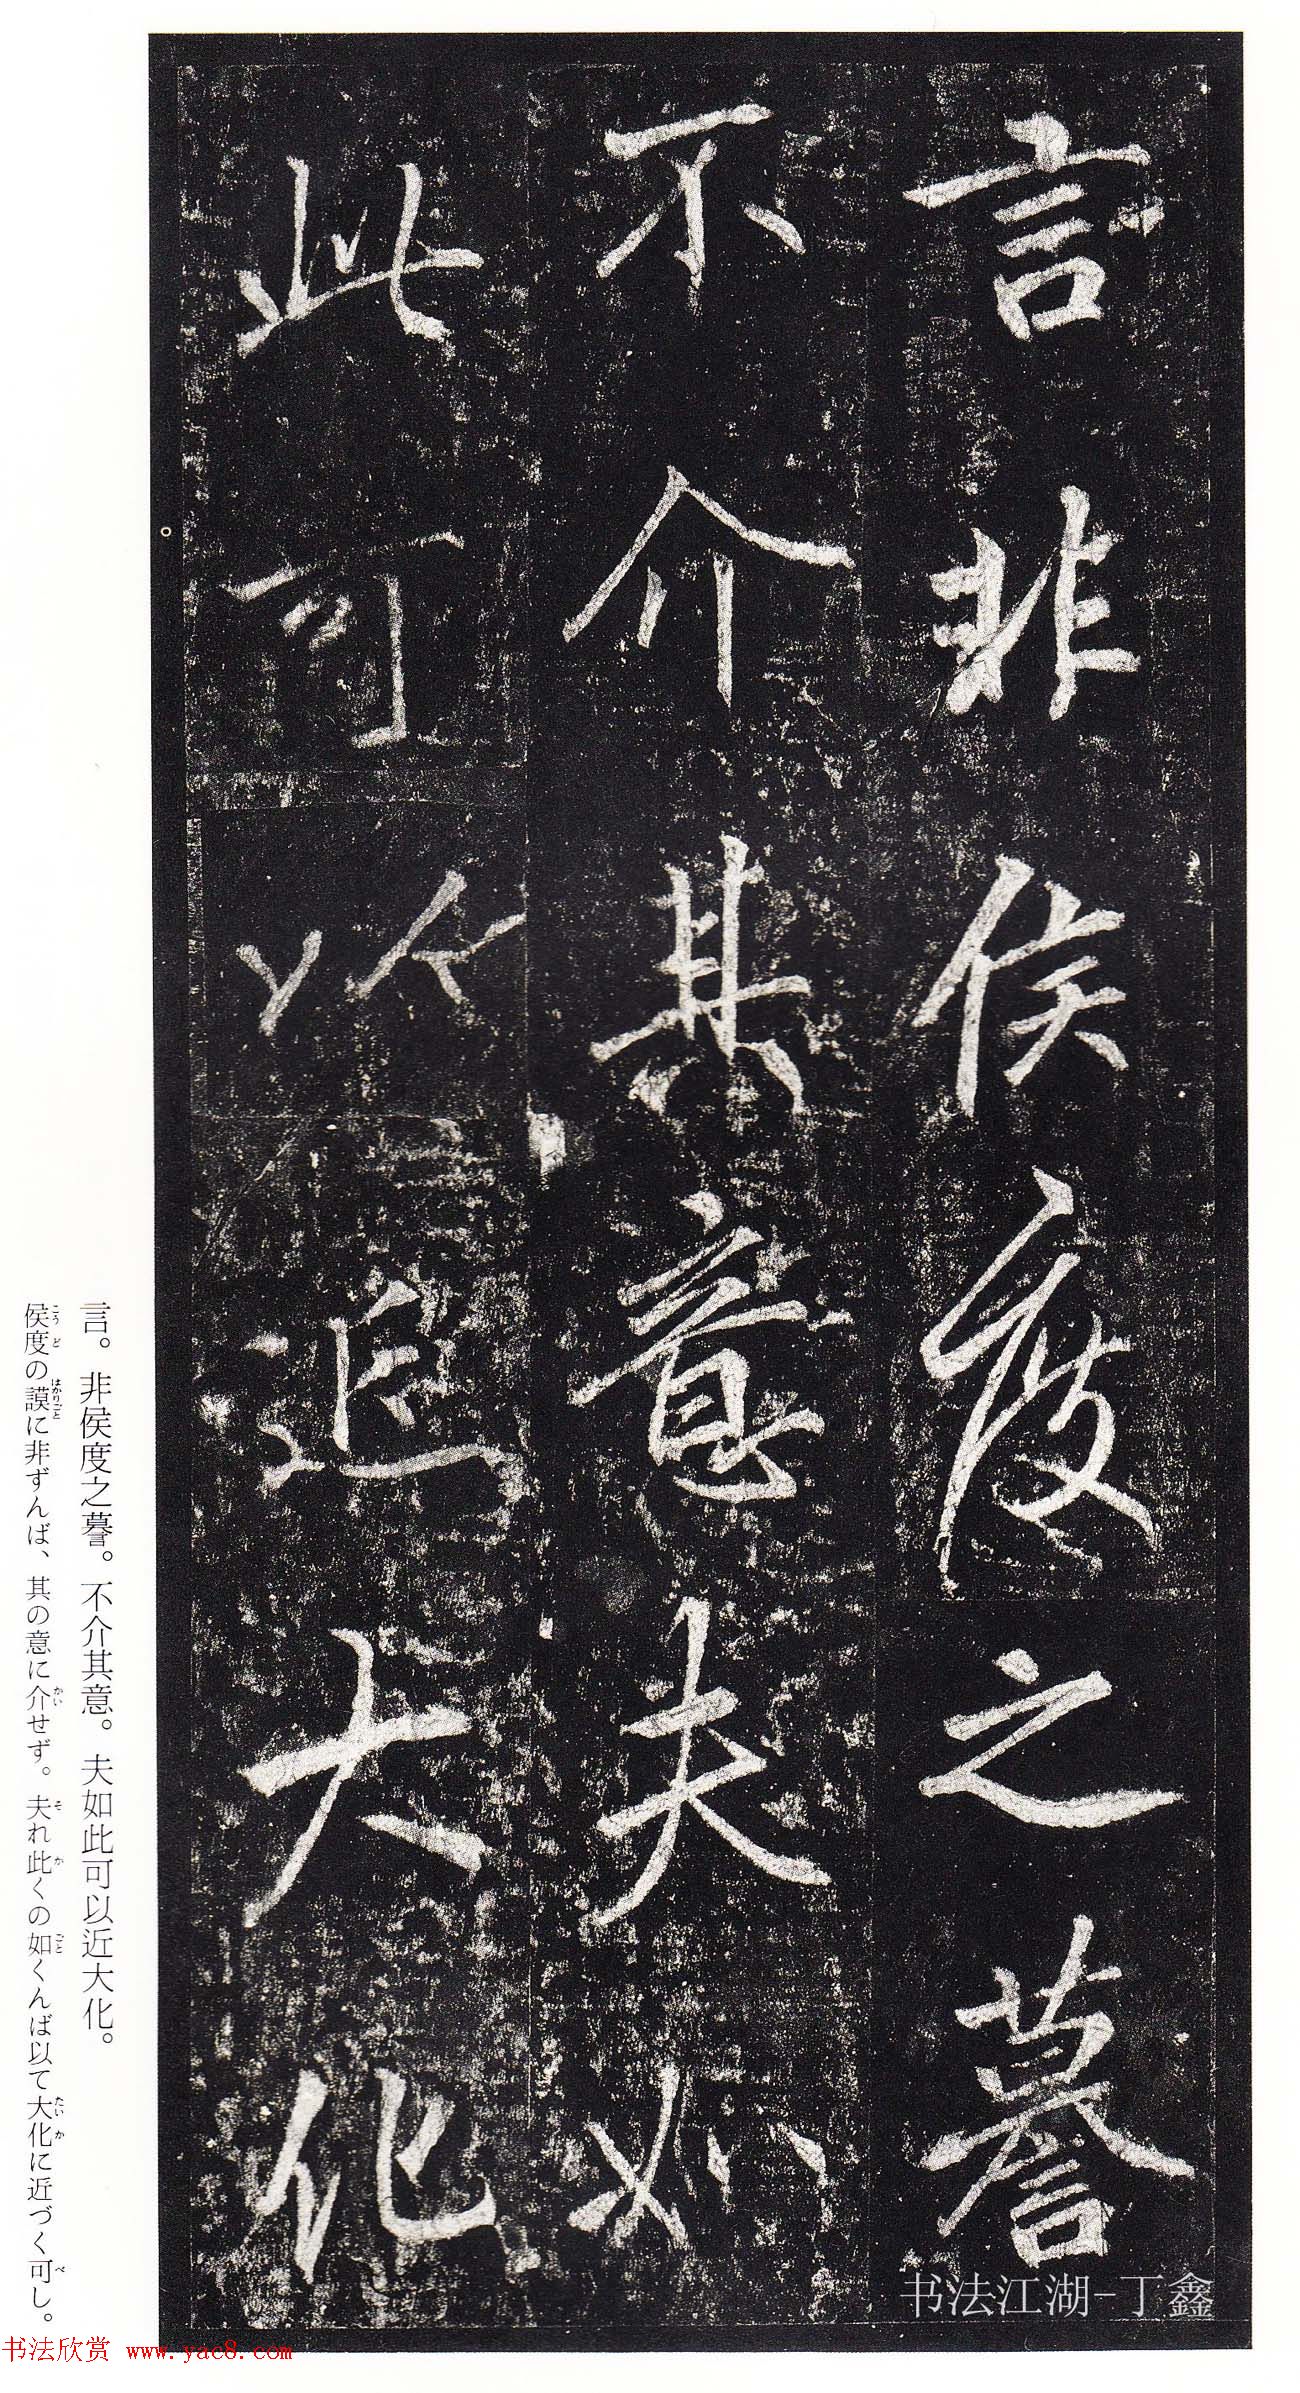 言非侯度之謩
不介其意夫如
此可以近大化
言。非侯度之謩。不介其意。夫如此可以近大化。
侯度の謨に非ずんば、其の意に介せず。夫れ此くの如くんば以て大化に近づく可し。
こうど はかりごと かい そ か ごと たいか べ
书法江湖-丁鑫
书法欣赏 www.yac8.com